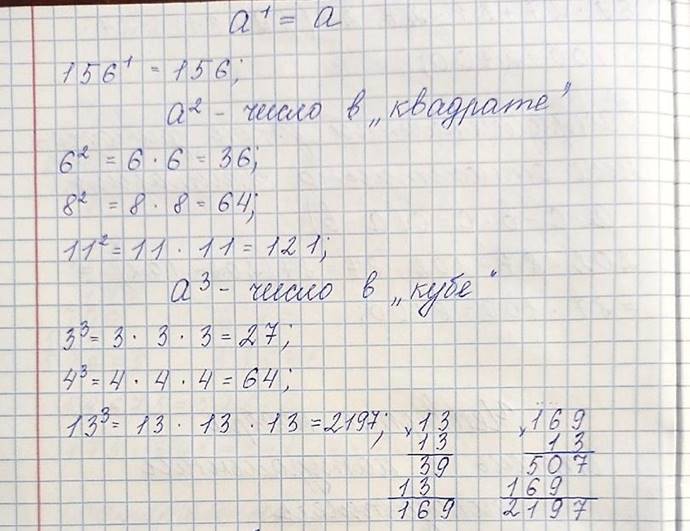 a¹ = a
156¹ = 156;
a² - число в „квадрате”
6² = 6 · 6 = 36;
8² = 8 · 8 = 64;
11² = 11 · 11 = 121;
a³ - число в „кубе"
3³ = 3 · 3 · 3 = 27;
4³ = 4 · 4 · 4 = 64;
13³ = 13 · 13 · 13 = 2197;
×13
13
39
13
169
×169
13
507
169
2197